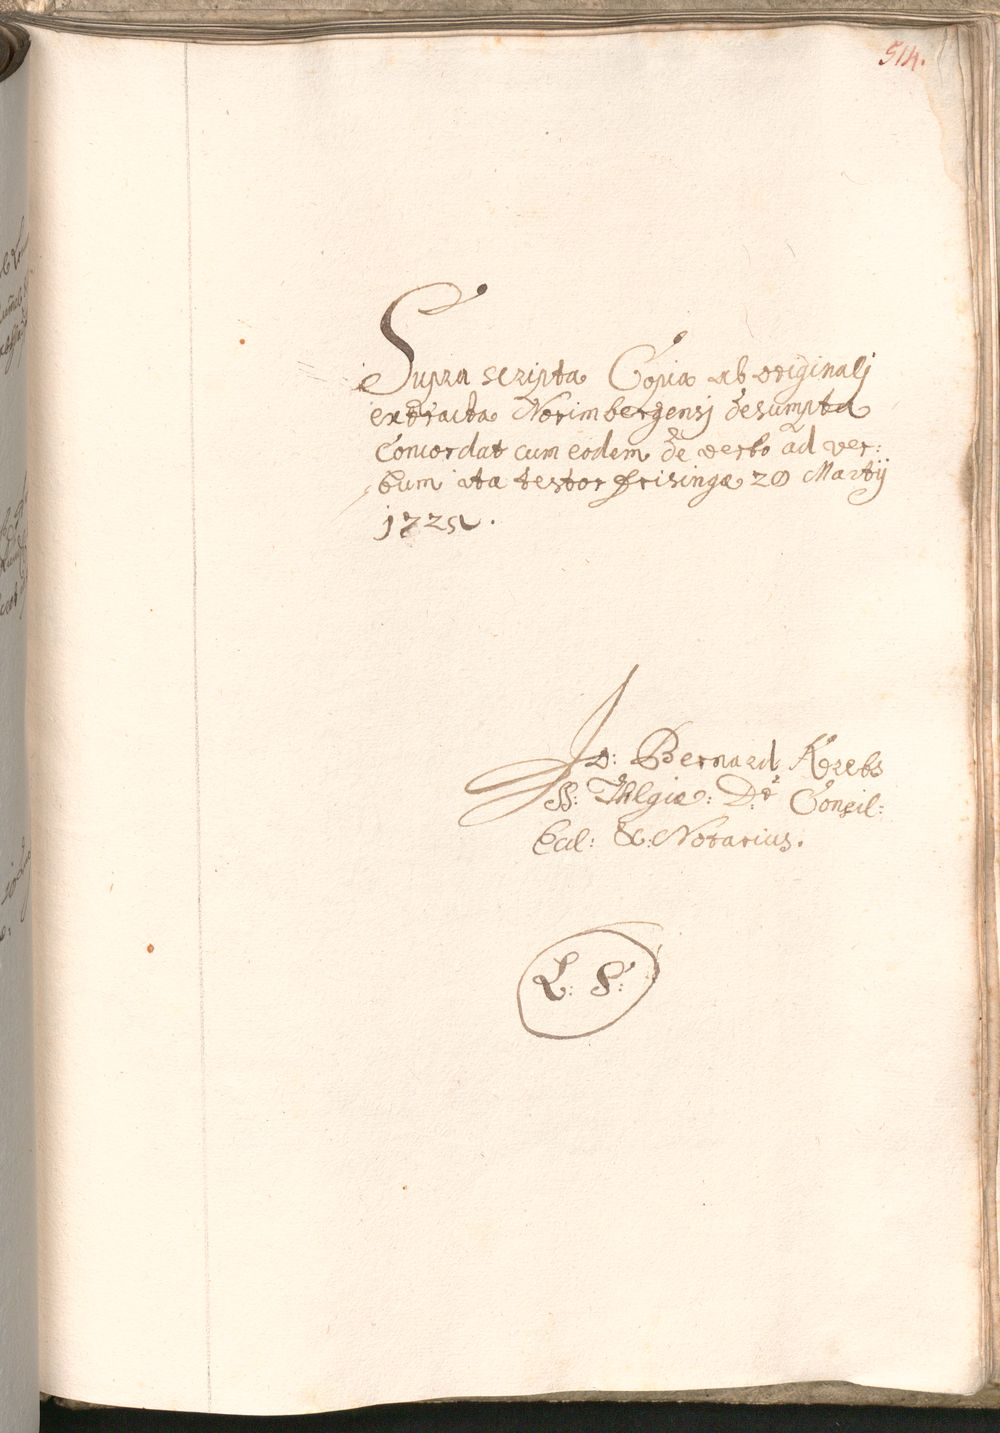 514.
Supra scripta Copia ab originalj
extracta Norimbergensj desumpta
Concordat cum eodem de verbo ad ver:
bum ita testor Frisingæ 20 Martij
Jo: Bernard Krebs
SS: Thlgiæ: D: Consil:
Eccl: &: Notarius.
L: S: